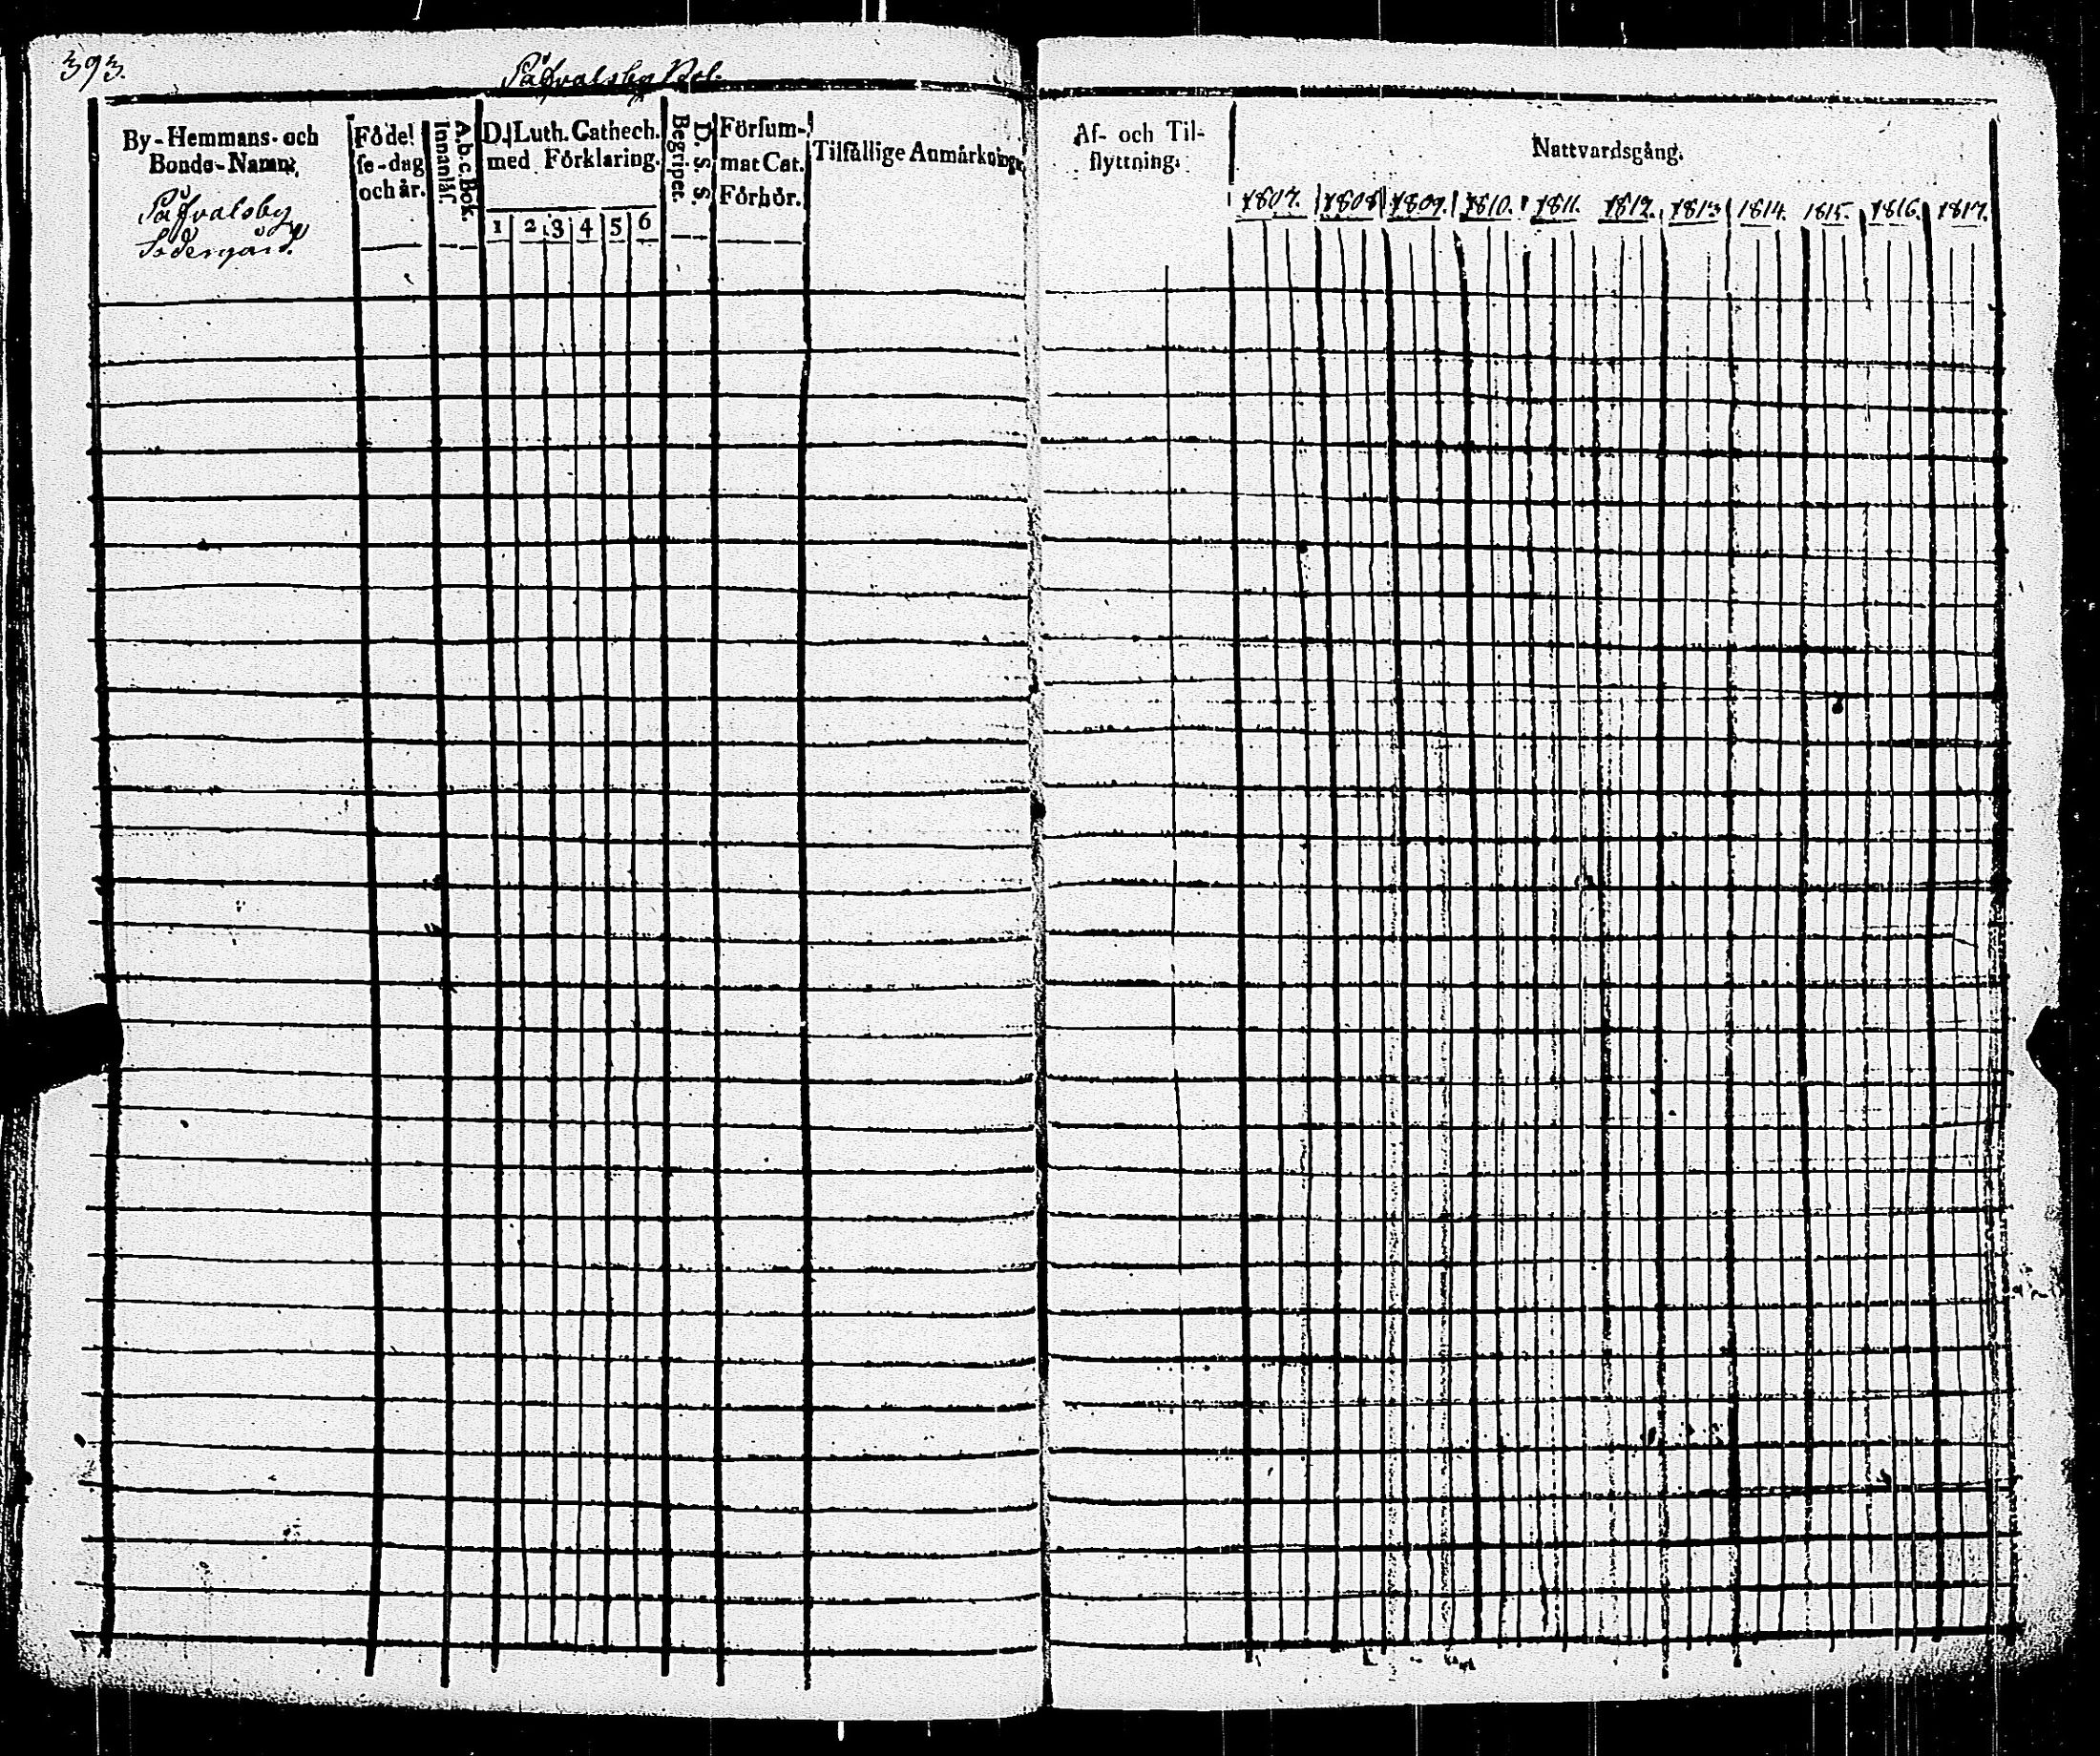 393.
Påfvalsby Bol.
By-Hemmans- och
Bonde-Namn,
Påfvalsby
Södergård
Födel
se-dag
och år.
A.b.c.Bok.
Innanläs.
D. Luth. Cathech.
med Förklaring.
1 2 3 4 5 6
D. S. S.
Begripet.
Försum-
mat Cat.
Förhör.
Tilfällige Anmärkningr.
Af- och Til-
flyttning.
Nattvardsgång.
1807. 1808 1809. 1810. 1811. 1812. 1813 1814. 1815. 1816. 1817.